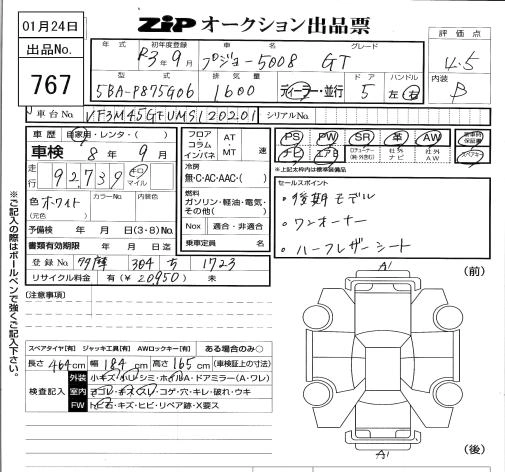 01月24日
出品No.
767
ZIP オークション出品票
評価点
4.5
内装
B
年式 初年度登録 車名 グレード
R3年9月 プジョー5008 GT
型式 排気量 ドア ハンドル
5BA-P875G06 1600 ディーラー・並行 5 左・右
車台No. VF3M45GFUMS120201 シリアルNo.
車歴 自家用・レンタ・( )
車検 8年9月
走行 92,739 キロ マイル
色 ホワイト (元色) カラーNo. 内装色
予備検 年 月 日(3・8)No.
書類有効期限 年 月 日迄
登録No. 304 ち 1723
リサイクル料金 有(¥20950) 未
フロア コラム インパネ
AT・MT 速
冷房
無・C・AC・AAC・( )
燃料
ガソリン・軽油・電気・その他( )
Nox 適合・非適合
乗車定員 名
PS PW SR 革 AW 新車時保証書
ナビ エアB 社外ナビ 社外AW スペアキー
※上記太枠内は標準装備品
セールスポイント
・後期モデル
・ワンオーナー
・ハーフレザーシート
※ご記入の際はボールペンで強くご記入下さい。
(注意事項)
A1
(前)
スペアタイヤ[有] ジャッキ工具[有] AWロックキー[有] ある場合のみ○
長さ 464cm 幅 184cm 高さ 165cm (車検証上の寸法)
検査記入
外装 小キズ・小U・シミ・ホイルA・ドアミラー(A・ワレ)
室内 ヨゴレ・キズ・スレ・コゲ・穴・キレ・破れ・ウキ
FW トビ石・キズ・ヒビ・リペア跡・X要ス
A1
(後)